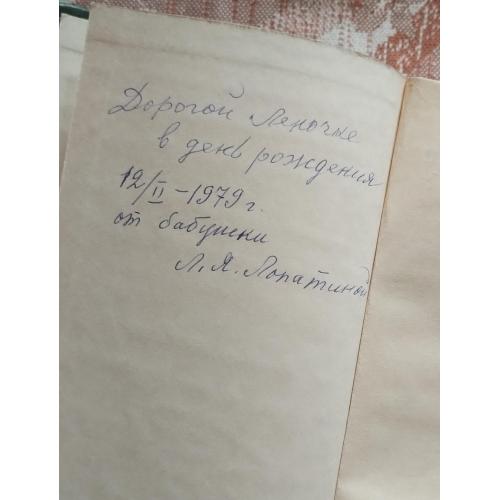 Дорогой Леночке
в день рождения
12/II-1979 г.
от бабушки
Л. Я. Лопатиной